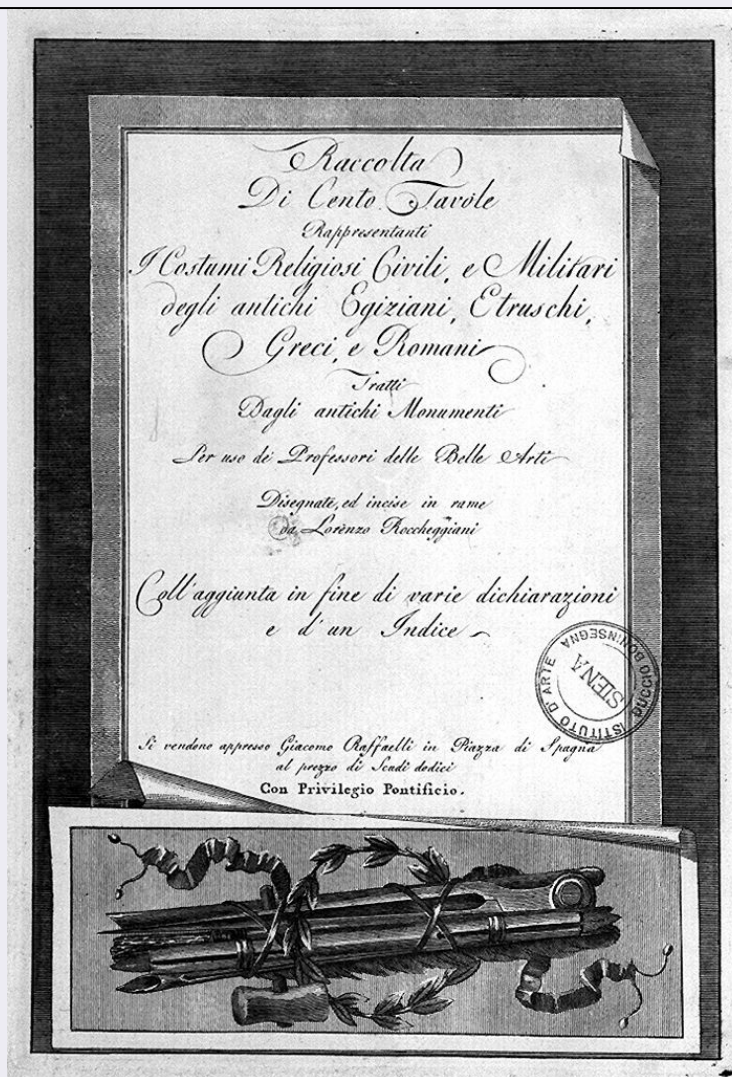 Raccolta
Di Cento Tavole
Rappresentanti
I Costumi Religiosi Civili, e Militari
degli antichi Egiziani, Etruschi,
Greci, e Romani
Tratti
Dagli antichi Monumenti
Per uso de' Professori delle Belle Arti
Disegnate, ed incise in rame
da Lorenzo Roccheggiani
Coll'aggiunta in fine di varie dichiarazioni
e d'un Indice
Si vendono appresso Giacomo Raffaelli in Piazza di Spagna
al prezzo di Scudi dodici
Con Privilegio Pontificio.
ISTITUTO D'ARTE
DUCCIO BONINSEGNA
SIENA